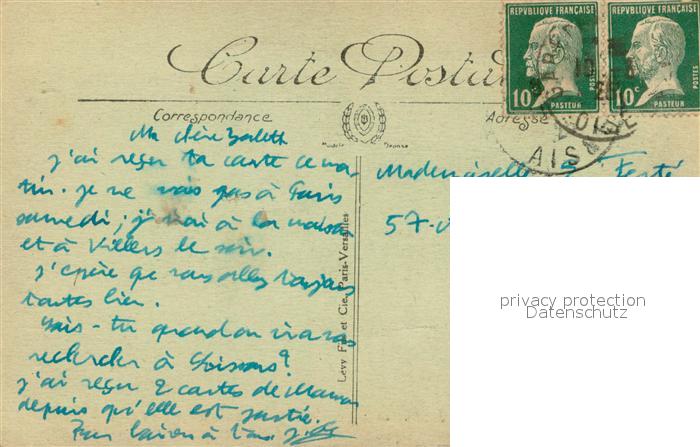 RÉPUBLIQUE FRANÇAISE
10c
PASTEUR
POSTES
RÉPUBLIQUE FRANÇAISE
10c
PASTEUR
POSTES
OISE
AIS
Carte Postale
Correspondance
Adresse
Modèle Déposé
Ma chère
j'ai reçu ta carte ce ma-
tin. je ne vais pas à Paris
samedi; j'irai à la maison
et à Villers le soir.
j'espère que vous allez toujours
toutes bien.
Sais-tu quand on ira vous
rechercher à Soissons?
j'ai reçu 2 cartes de Maman
depuis qu'elle est partie.
à
Mademoiselle
57
Lévy Fils et Cie, Paris-Versailles
privacy protection
Datenschutz